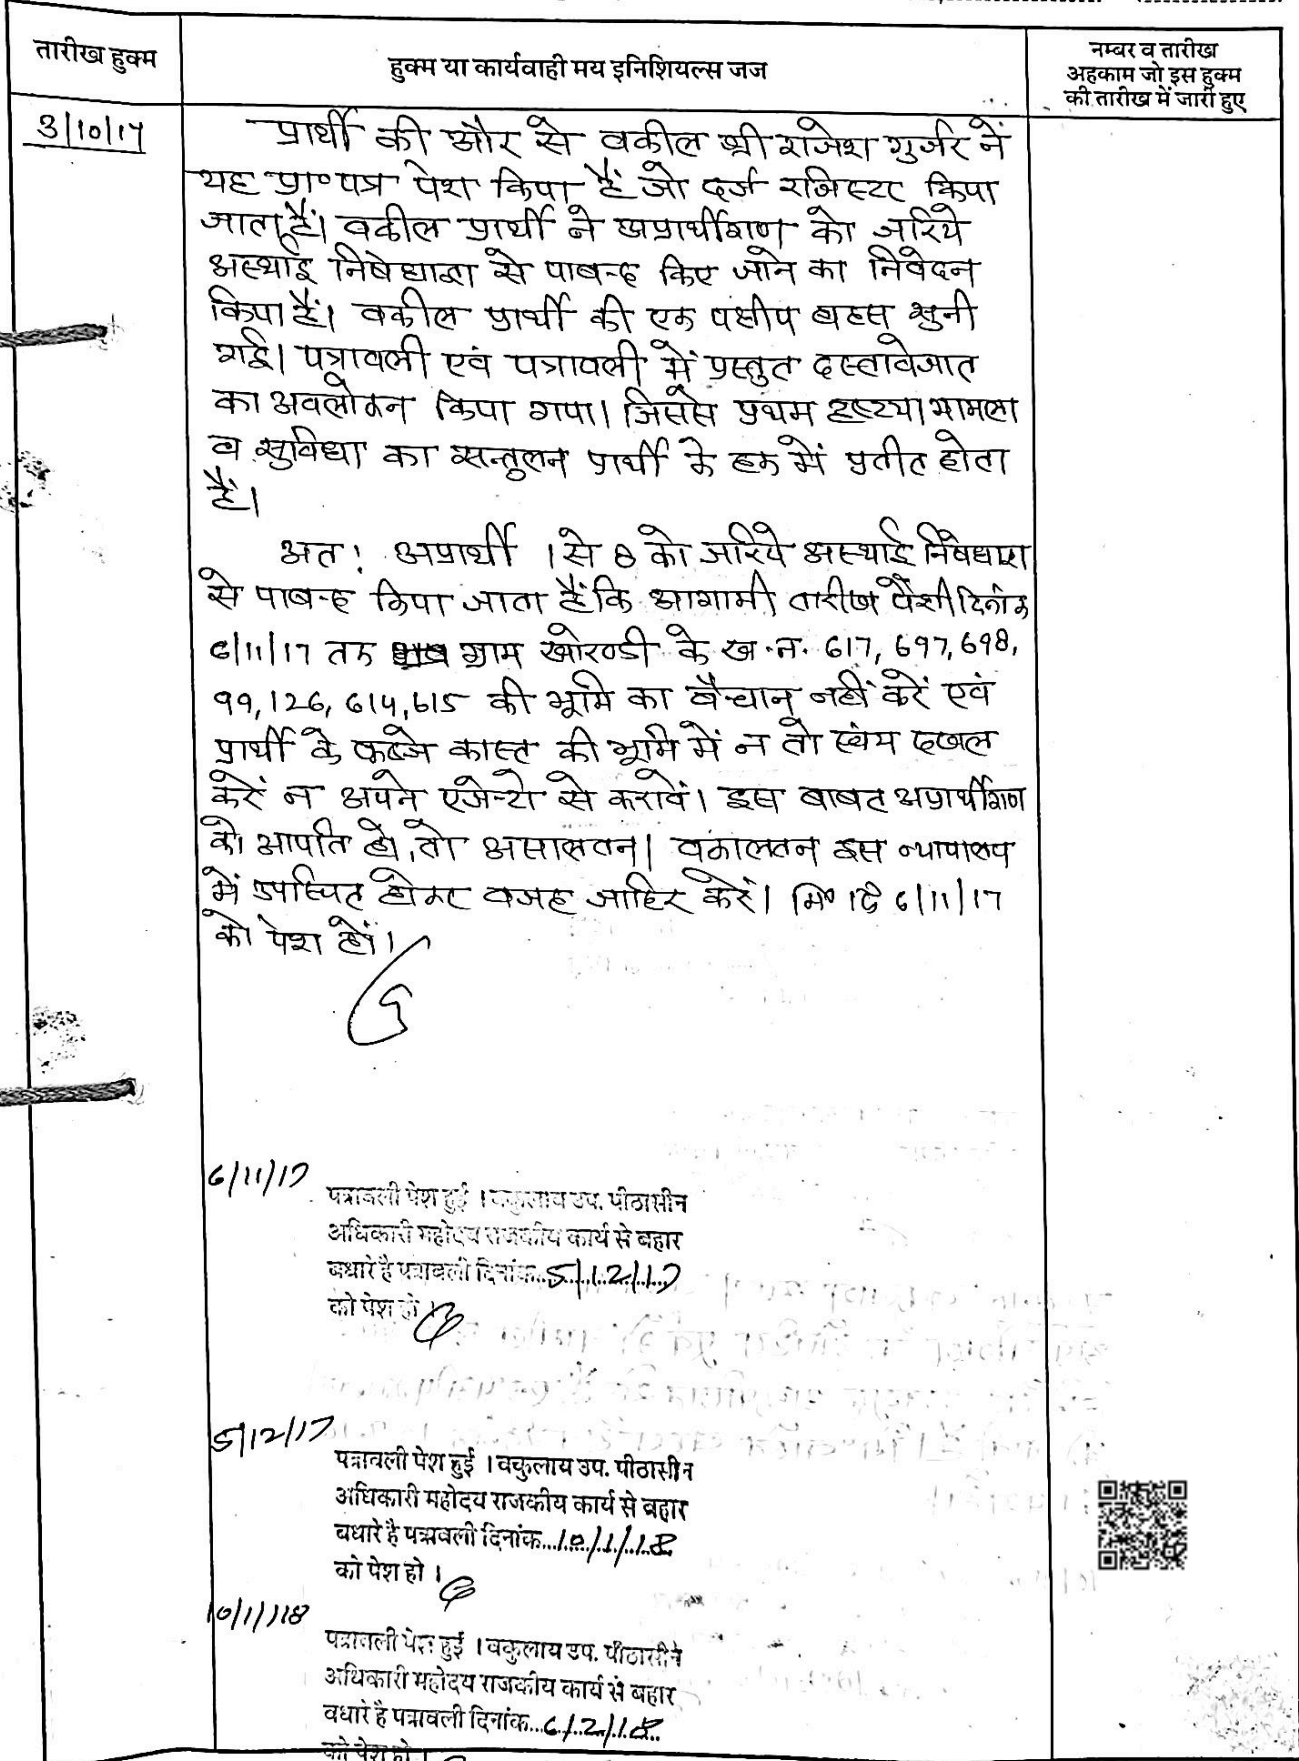 तारीख हुक्म
हुक्म या कार्यवाही मय इनिशियल्स जज
नम्बर व तारीख
अहकाम जो इस हुक्म
की तारीख में जारी हुए
3/10/17
प्रार्थी की और से वकील श्री राजेश गुर्जर नें
यह प्रा०पत्र पेश किया हैं जो दर्ज रजिस्टर किया
जाता हैं। वकील प्रार्थी ने अप्रार्थीगण को जरिये
अस्थाई निषेधाज्ञा से पाबन्द किए जाने का निवेदन
किया हैं। वकील प्रार्थी की एक पक्षीय बहस सुनी
गई। पत्रावली एवं पत्रावली में प्रस्तुत दस्तावेजात
का अवलोकन किया गया। जिससे प्रथम दृष्टया मामला
व सुविधा का सन्तुलन प्रार्थी के हक में प्रतीत होता
हैं।
अतः अप्रार्थी 1 से 8 को जरिये अस्थाई निषेधाज्ञा
से पाबन्द किया जाता हैं कि आगामी तारीख पेशी दिनांक
6/11/17 तक ग्राम खोरण्डी के ख.न. 617, 697, 698,
99, 126, 614, 615 की भूमि का बैचान नहीं करें एवं
प्रार्थी के कब्जे कास्त की भूमि में न तो स्वंय दखल
करें न अपने एजेन्टो से करावें। इस बाबत अप्रार्थीगण
को आपति हो, तो असालतन। वकालतन इस न्यायालय
में उपस्थित होकर वजह जाहिर करें। मि० दि 6/11/17
को पेश हों।
6/11/17
पत्रावली पेश हुई । वकुलाय उप. पीठासीन
अधिकारी महोदय राजकीय कार्य से बहार
बधारे है पत्रावली दिनांक...5/12/17
को पेश हो ।
5/12/17
पत्रावली पेश हुई । वकुलाय उप. पीठासीन
अधिकारी महोदय राजकीय कार्य से बहार
बधारे है पत्रावली दिनांक...10/1/18
को पेश हो ।
10/1/18
पत्रावली पेश हुई । वकुलाय उप. पीठासीन
अधिकारी महोदय राजकीय कार्य से बहार
वधारे है पत्रावली दिनांक...6/2/18
को पेश हो ।